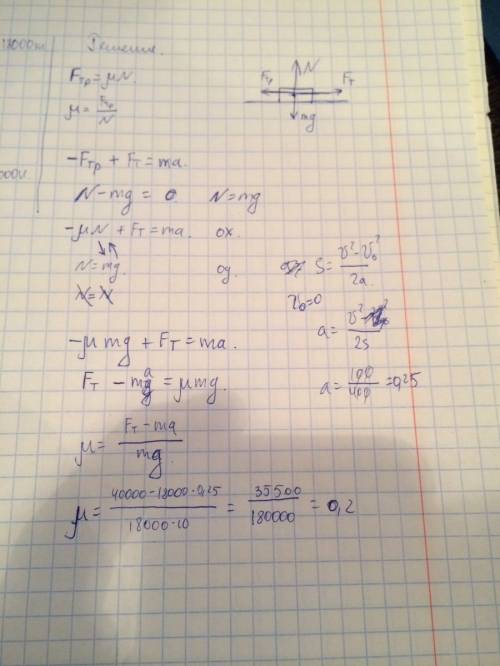 18000кг
Решение.
Fтр = μN.
μ = Fтр / N
N
Fтр
Fт
mg
-Fтр + Fт = ma.
000м.
N - mg = 0 N = mg
-μN + Fт = ma. ox.
N = mg. oy.
N = N
S = (v² - v₀²) / 2a.
v₀ = 0
a = v² / 2s
-μmg + Fт = ma.
Fт - ma = μmg.
a = 100 / 400 = 0,25
μ = (Fт - ma) / mg.
μ = (40000 - 18000 · 0,25) / (18000 · 10) = 35500 / 180000 = 0,2